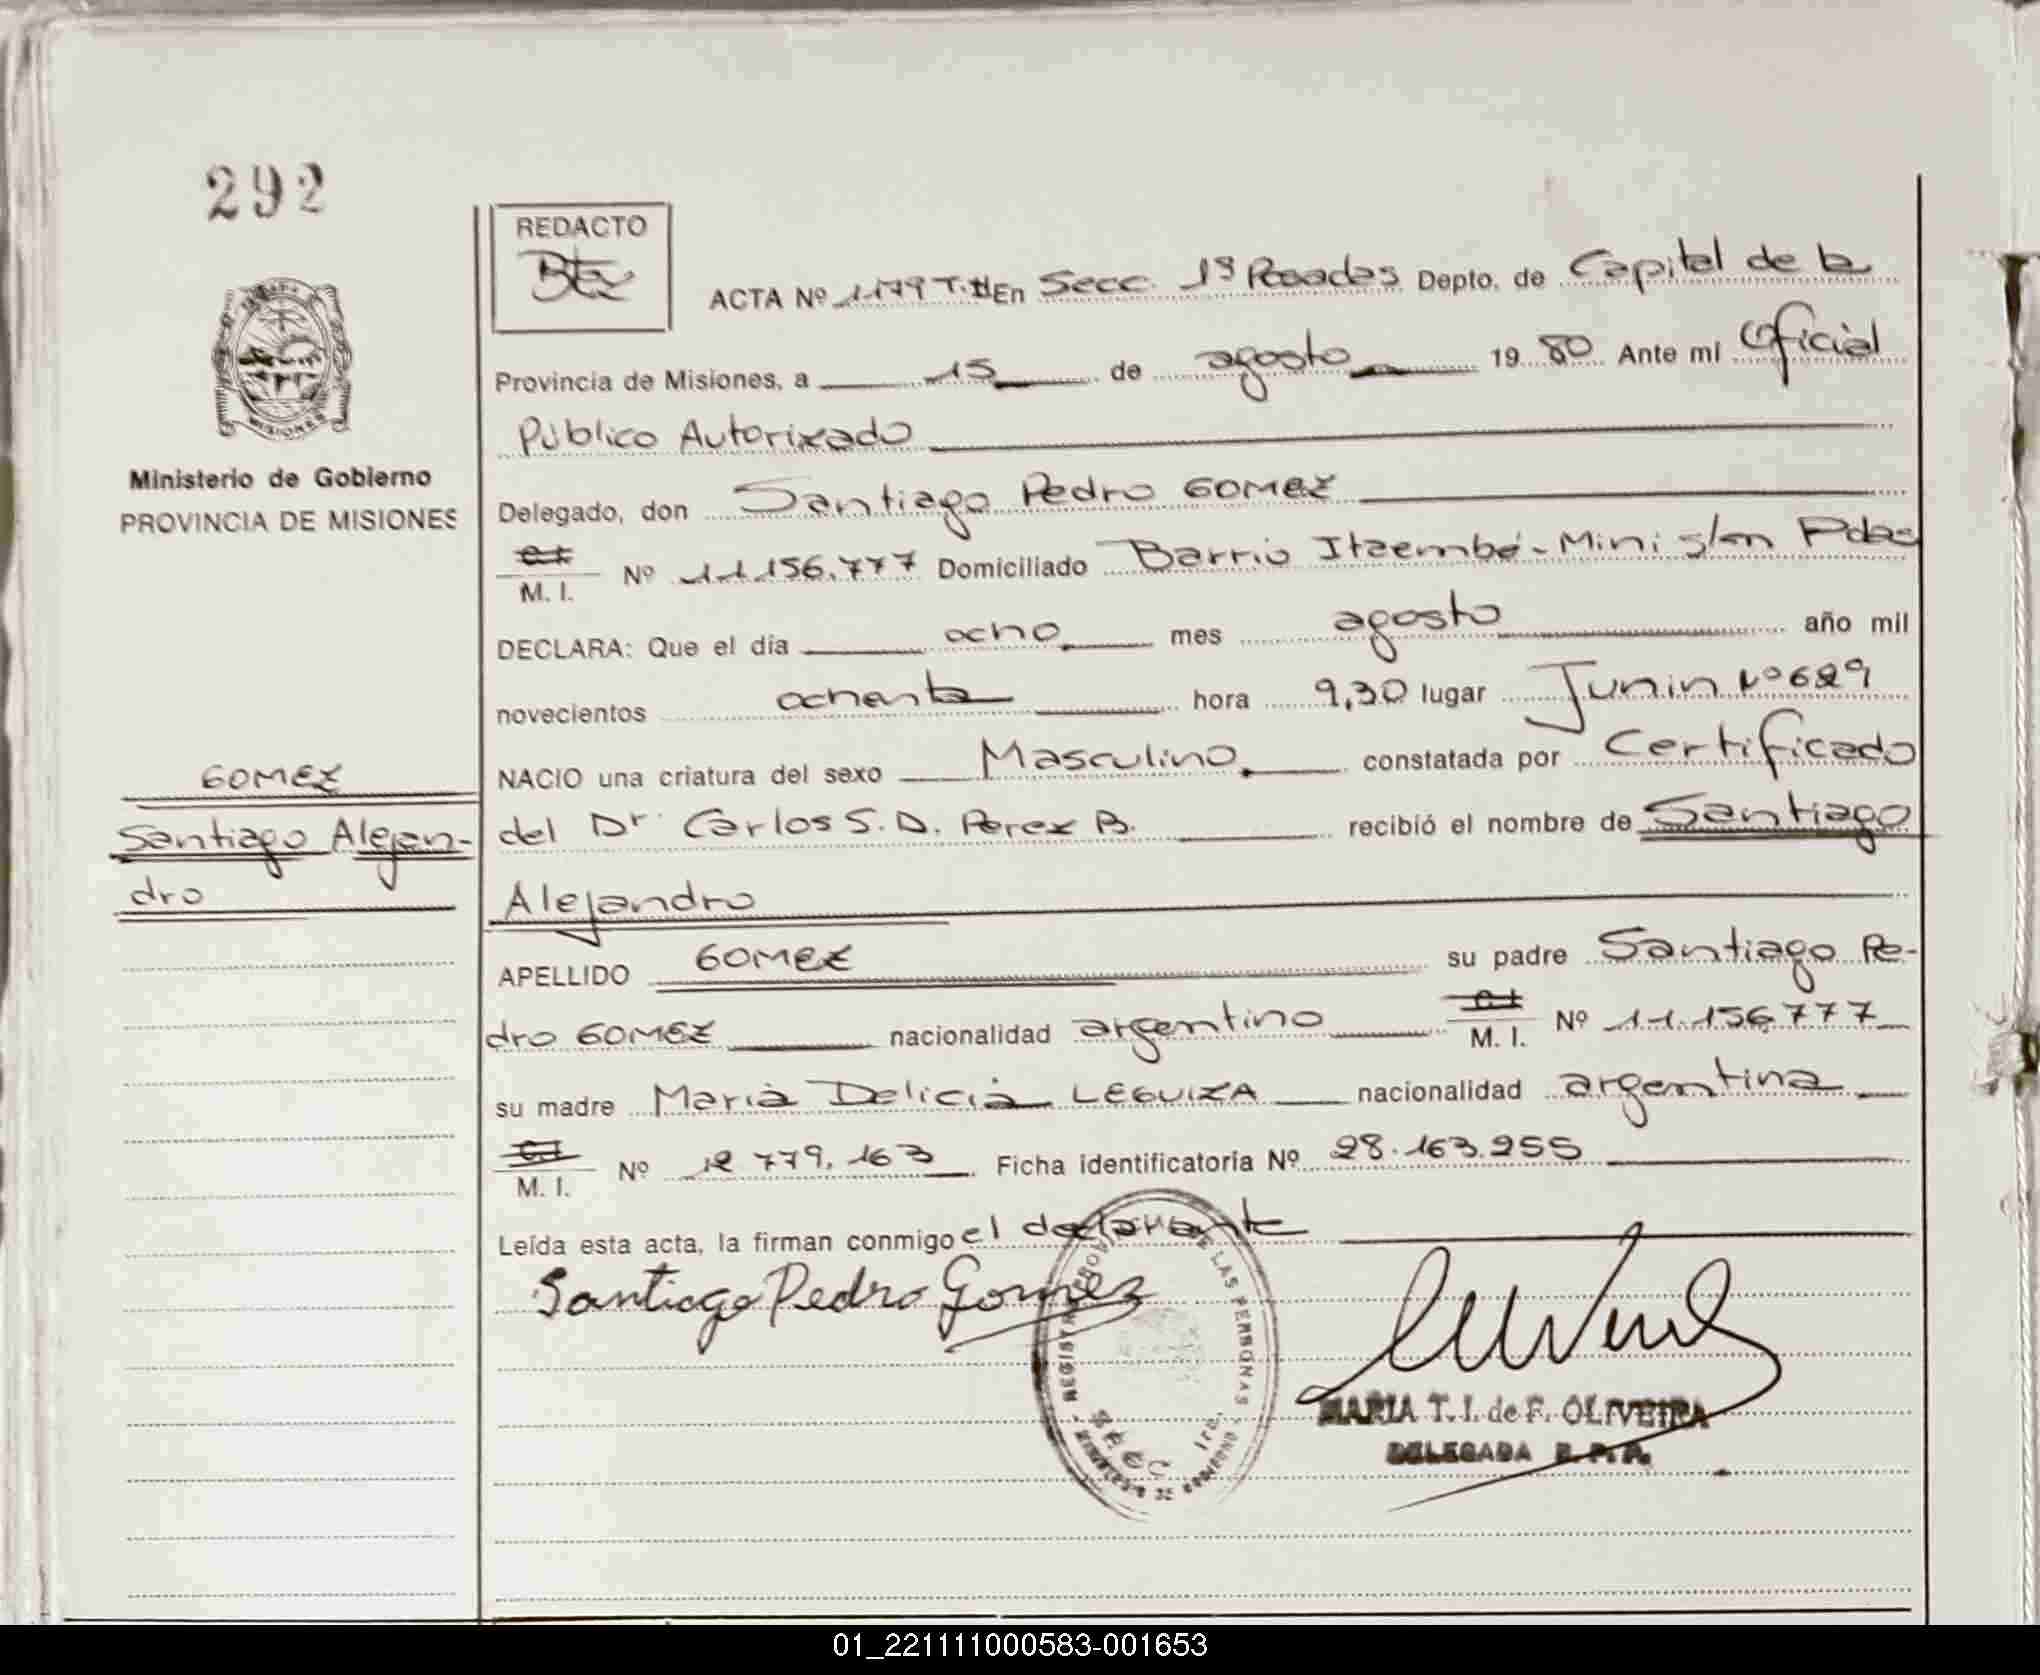 292
REDACTO
ACTA Nº 1179 T. II En Secc. 1ª Posadas Depto. de Capital de la
Provincia de Misiones, a 15 de agosto 1980 Ante mí Oficial
Público Autorizado
MISIONES
Ministerio de Gobierno
PROVINCIA DE MISIONES
Delegado, don Santiago Pedro GOMEZ
M. I. Nº 11.156.777 Domiciliado Barrio Itaembé-Mini s/n Pdas
DECLARA: Que el día ocho mes agosto año mil
novecientos ochenta hora 9,30 lugar Junin Nº 629
NACIO una criatura del sexo Masculino constatada por Certificado
del Dr. Carlos S. D. Perez B. recibió el nombre de Santiago
Alejandro
GOMEZ
Santiago Alejan-
dro
APELLIDO GOMEZ su padre Santiago Pe-
dro GOMEZ nacionalidad argentino M. I. Nº 11.156.777
su madre Maria Delicia LEGUIZA nacionalidad argentina
M. I. Nº 12.779.163 Ficha identificatoria Nº 28.163.255
Leída esta acta, la firman conmigo el declarante
Santiago Pedro Gomez
MARIA T. I. de F. OLIVEIRA
DELEGADA R. P. P.
DE LAS PERSONAS
SECC 1ra.
01_221111000583-001653